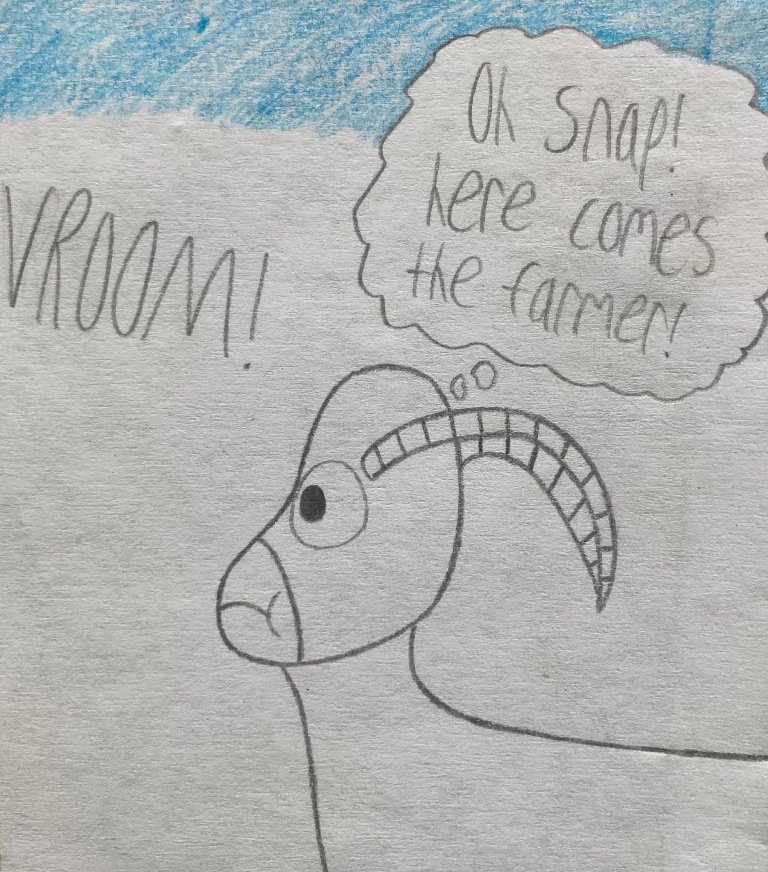 VROOM!
Oh Snap!
here comes
the farmer!